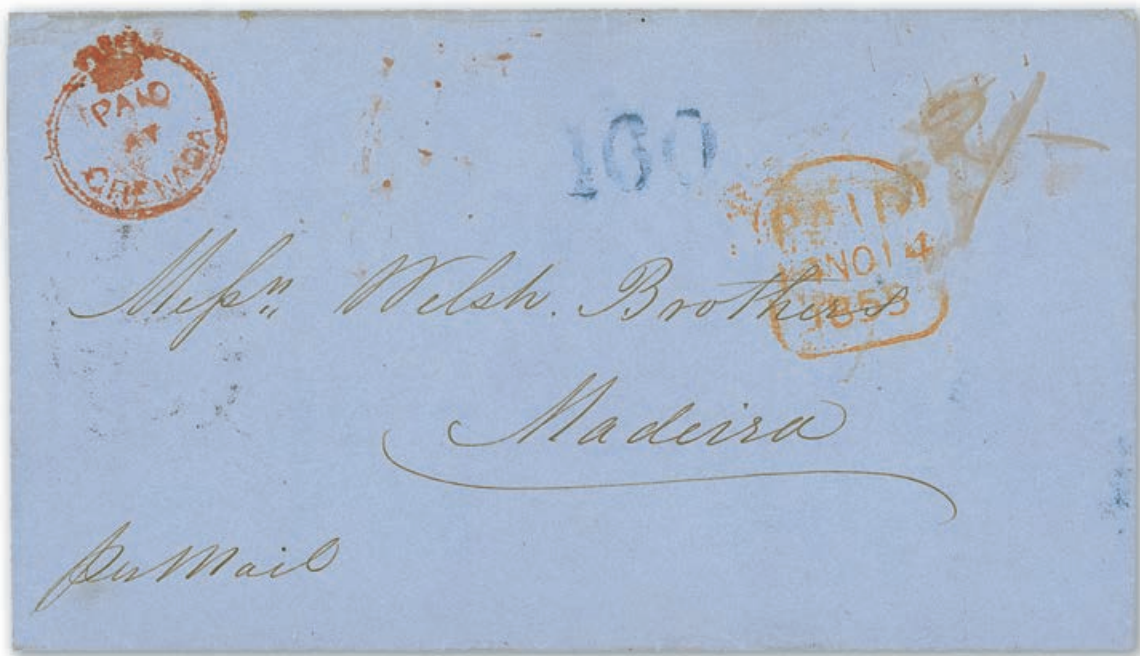 PAID
AT
GRENADA
100
PAID
NO14
Messrs Welsh. Brothers
Madeira
per Mail